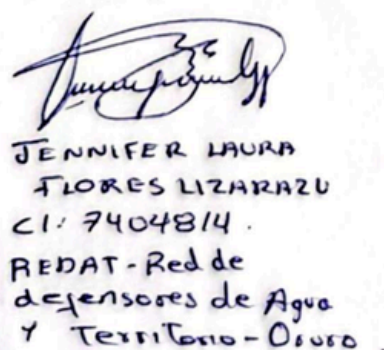 JENNIFER LAURA
FLORES LIZARAZU
CI: 7404814.
REDAT - Red de
defensores de Agua
Y Territorio - Oruro